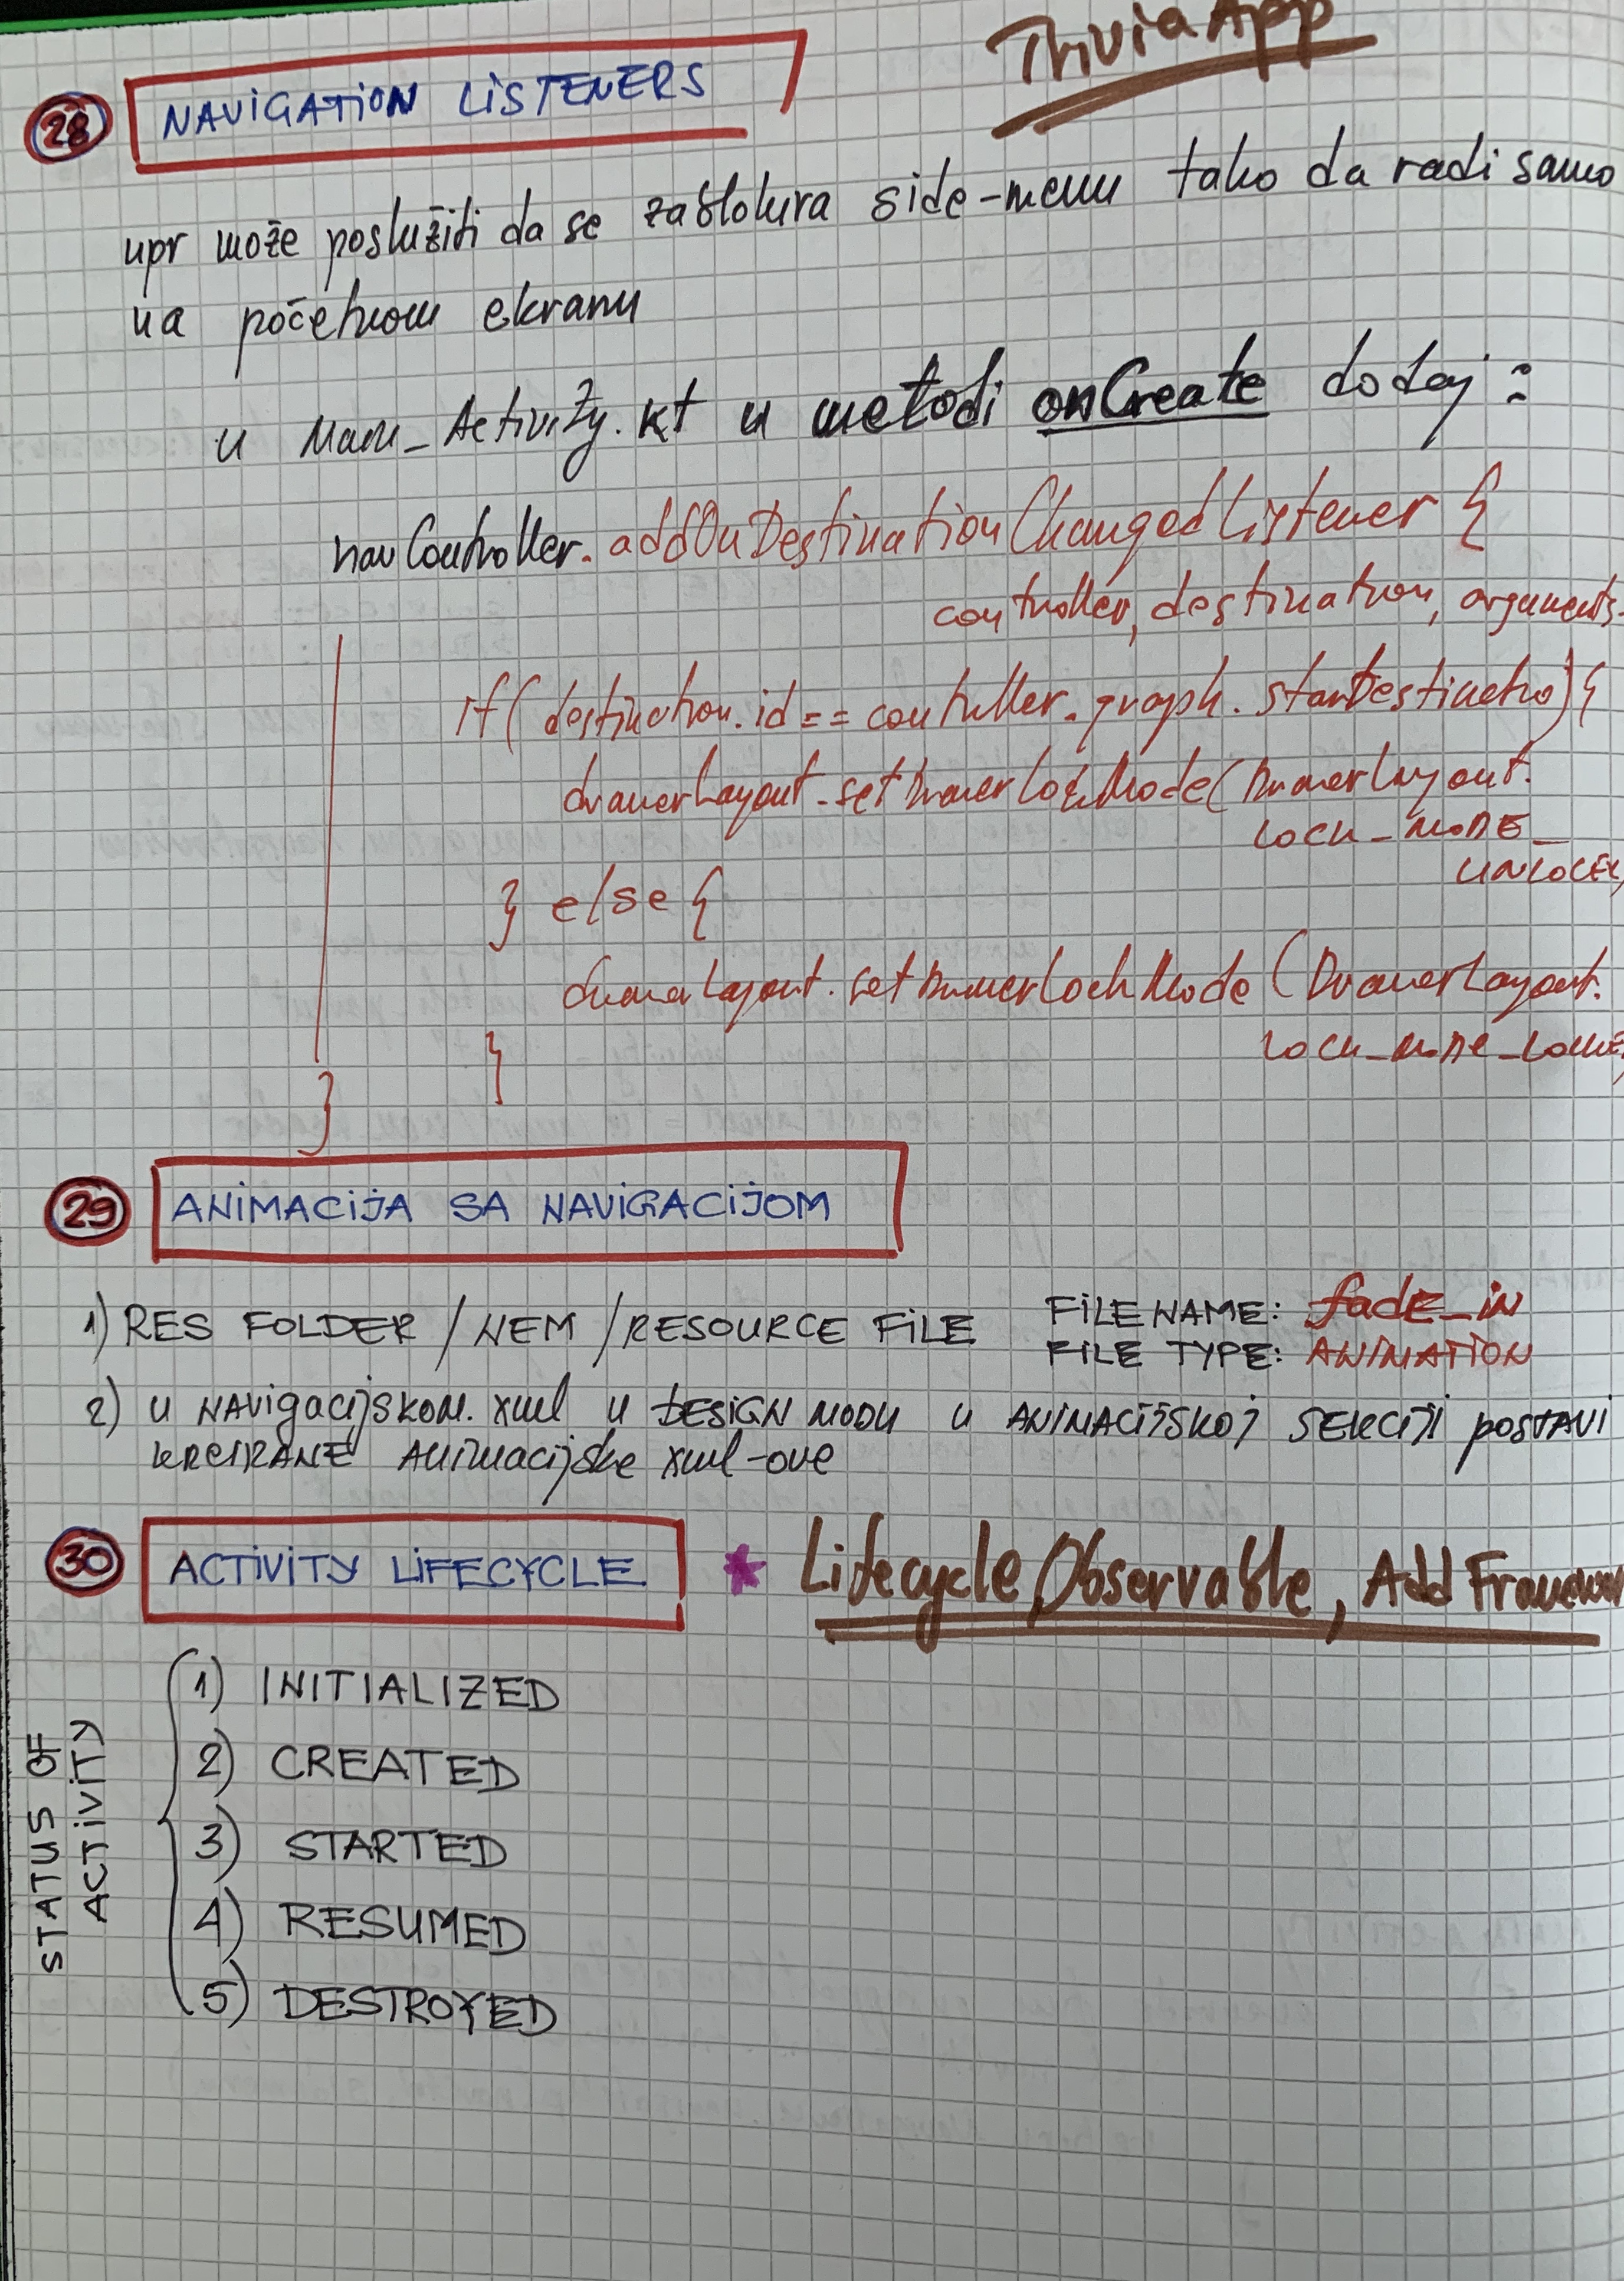 Trivia App
28 NAVIGATION LISTENERS
npr može poslužiti da se zablokira side-menu tako da radi samo
na početnom ekranu
u Main_Activity.kt u metodi onCreate dodaj:
navController.addOnDestinationChangedListener {
controller, destination, arguments
if( destination.id == controller.graph.startDestinatio) {
drawerLayout.setDrawerLockMode( DrawerLayout.
LOCK_MODE_
UNLOCK
} else {
drawerLayout.setDrawerLockMode ( DrawerLayout.
LOCK_MODE_LOCKE
}
}
29 ANIMACIJA SA NAVIGACIJOM
1) RES FOLDER / NEW / RESOURCE FILE FILE NAME: fadE_iN
FILE TYPE: ANIMATION
2) U NAVigacijskom.xml U DESIGN MODU U ANIMACIJSKOJ SEKCIJI POSTAVI
KREIRANE ANimacijske xml-ove
30 ACTIVITY LIFECYCLE * Lifecycle, Observable, Add Framewor
STATUS OF
ACTIVITY
1) INITIALIZED
2) CREATED
3) STARTED
4) RESUMED
5) DESTROYED